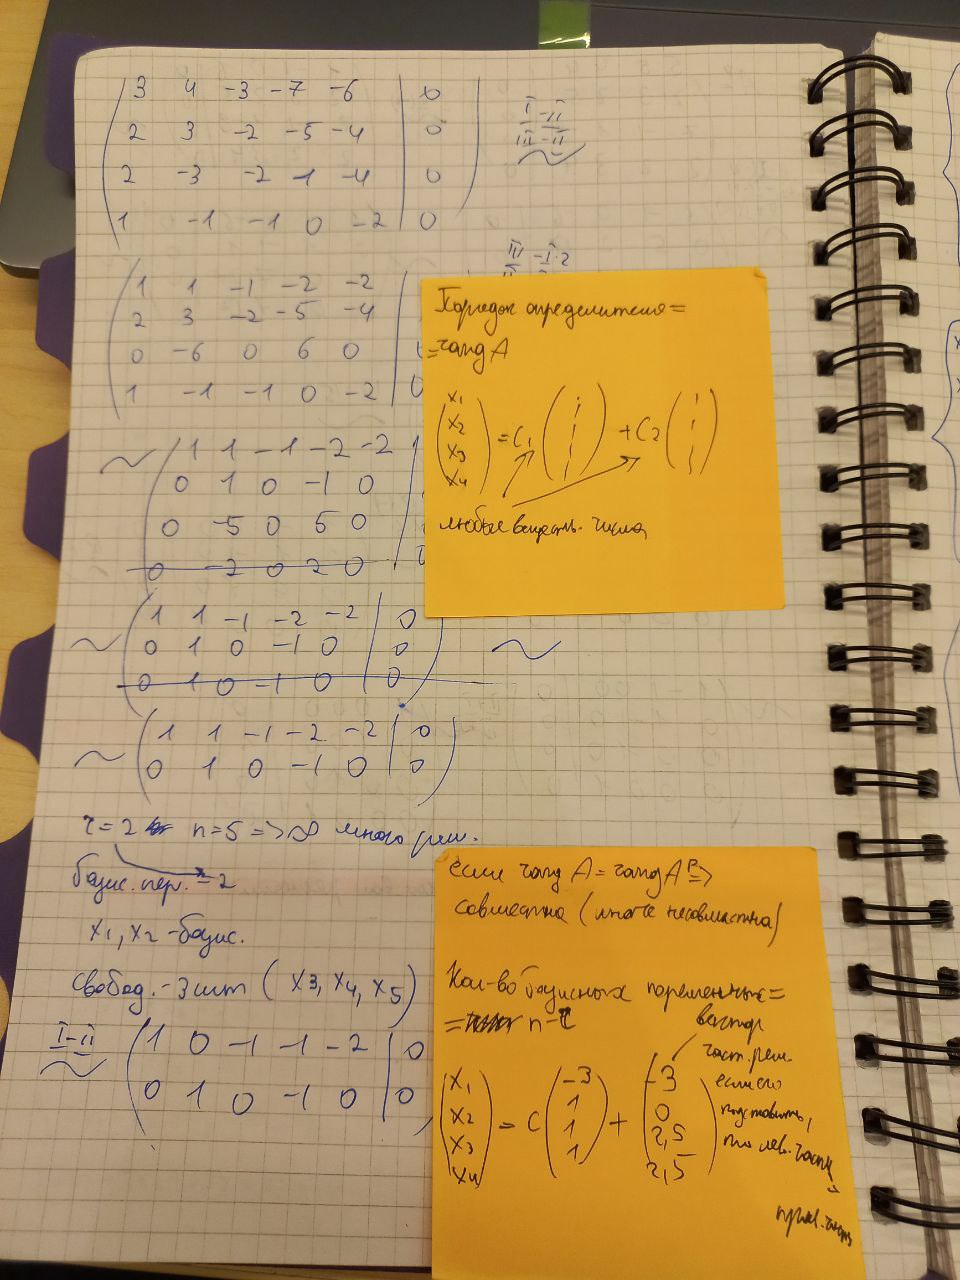 3 4 -3 -7 -6 | 0
2 3 -2 -5 -4 | 0
2 -3 -2 1 -4 | 0
1 -1 -1 0 -2 | 0
I-II
III-II
~
III -I·2
1 1 -1 -2 -2
2 3 -2 -5 -4
0 -6 0 6 0
1 -1 -1 0 -2 | 0
~ 1 1 -1 -2 -2
0 1 0 -1 0
0 -5 0 5 0
0 -2 0 2 0
~ 1 1 -1 -2 -2 | 0
0 1 0 -1 0 | 0
0 1 0 -1 0 | 0
~
~ 1 1 -1 -2 -2 | 0
0 1 0 -1 0 | 0
r=2 n=5 => ∞ много реш.
базис. пер. = 2
x1, x2 - базис.
свобод. - 3 шт (x3, x4, x5)
I-II
~ 1 0 -1 -1 -2 | 0
0 1 0 -1 0 | 0
Порядок определителя =
= rang A
(x1 x2 x3 x4) = C1 ( ) + C2 ( )
любые веществ. числа
если rang A = rang A^P =>
совместна (иначе несовместна)
Кол-во базисных переменных =
= n-r
вектор
част. реш.
если его
подставить,
то лев. часть
=
прав. часть
x1 -3 -3
x2 1 0
x3 = C 1 + 2,5
x4 1 2,5